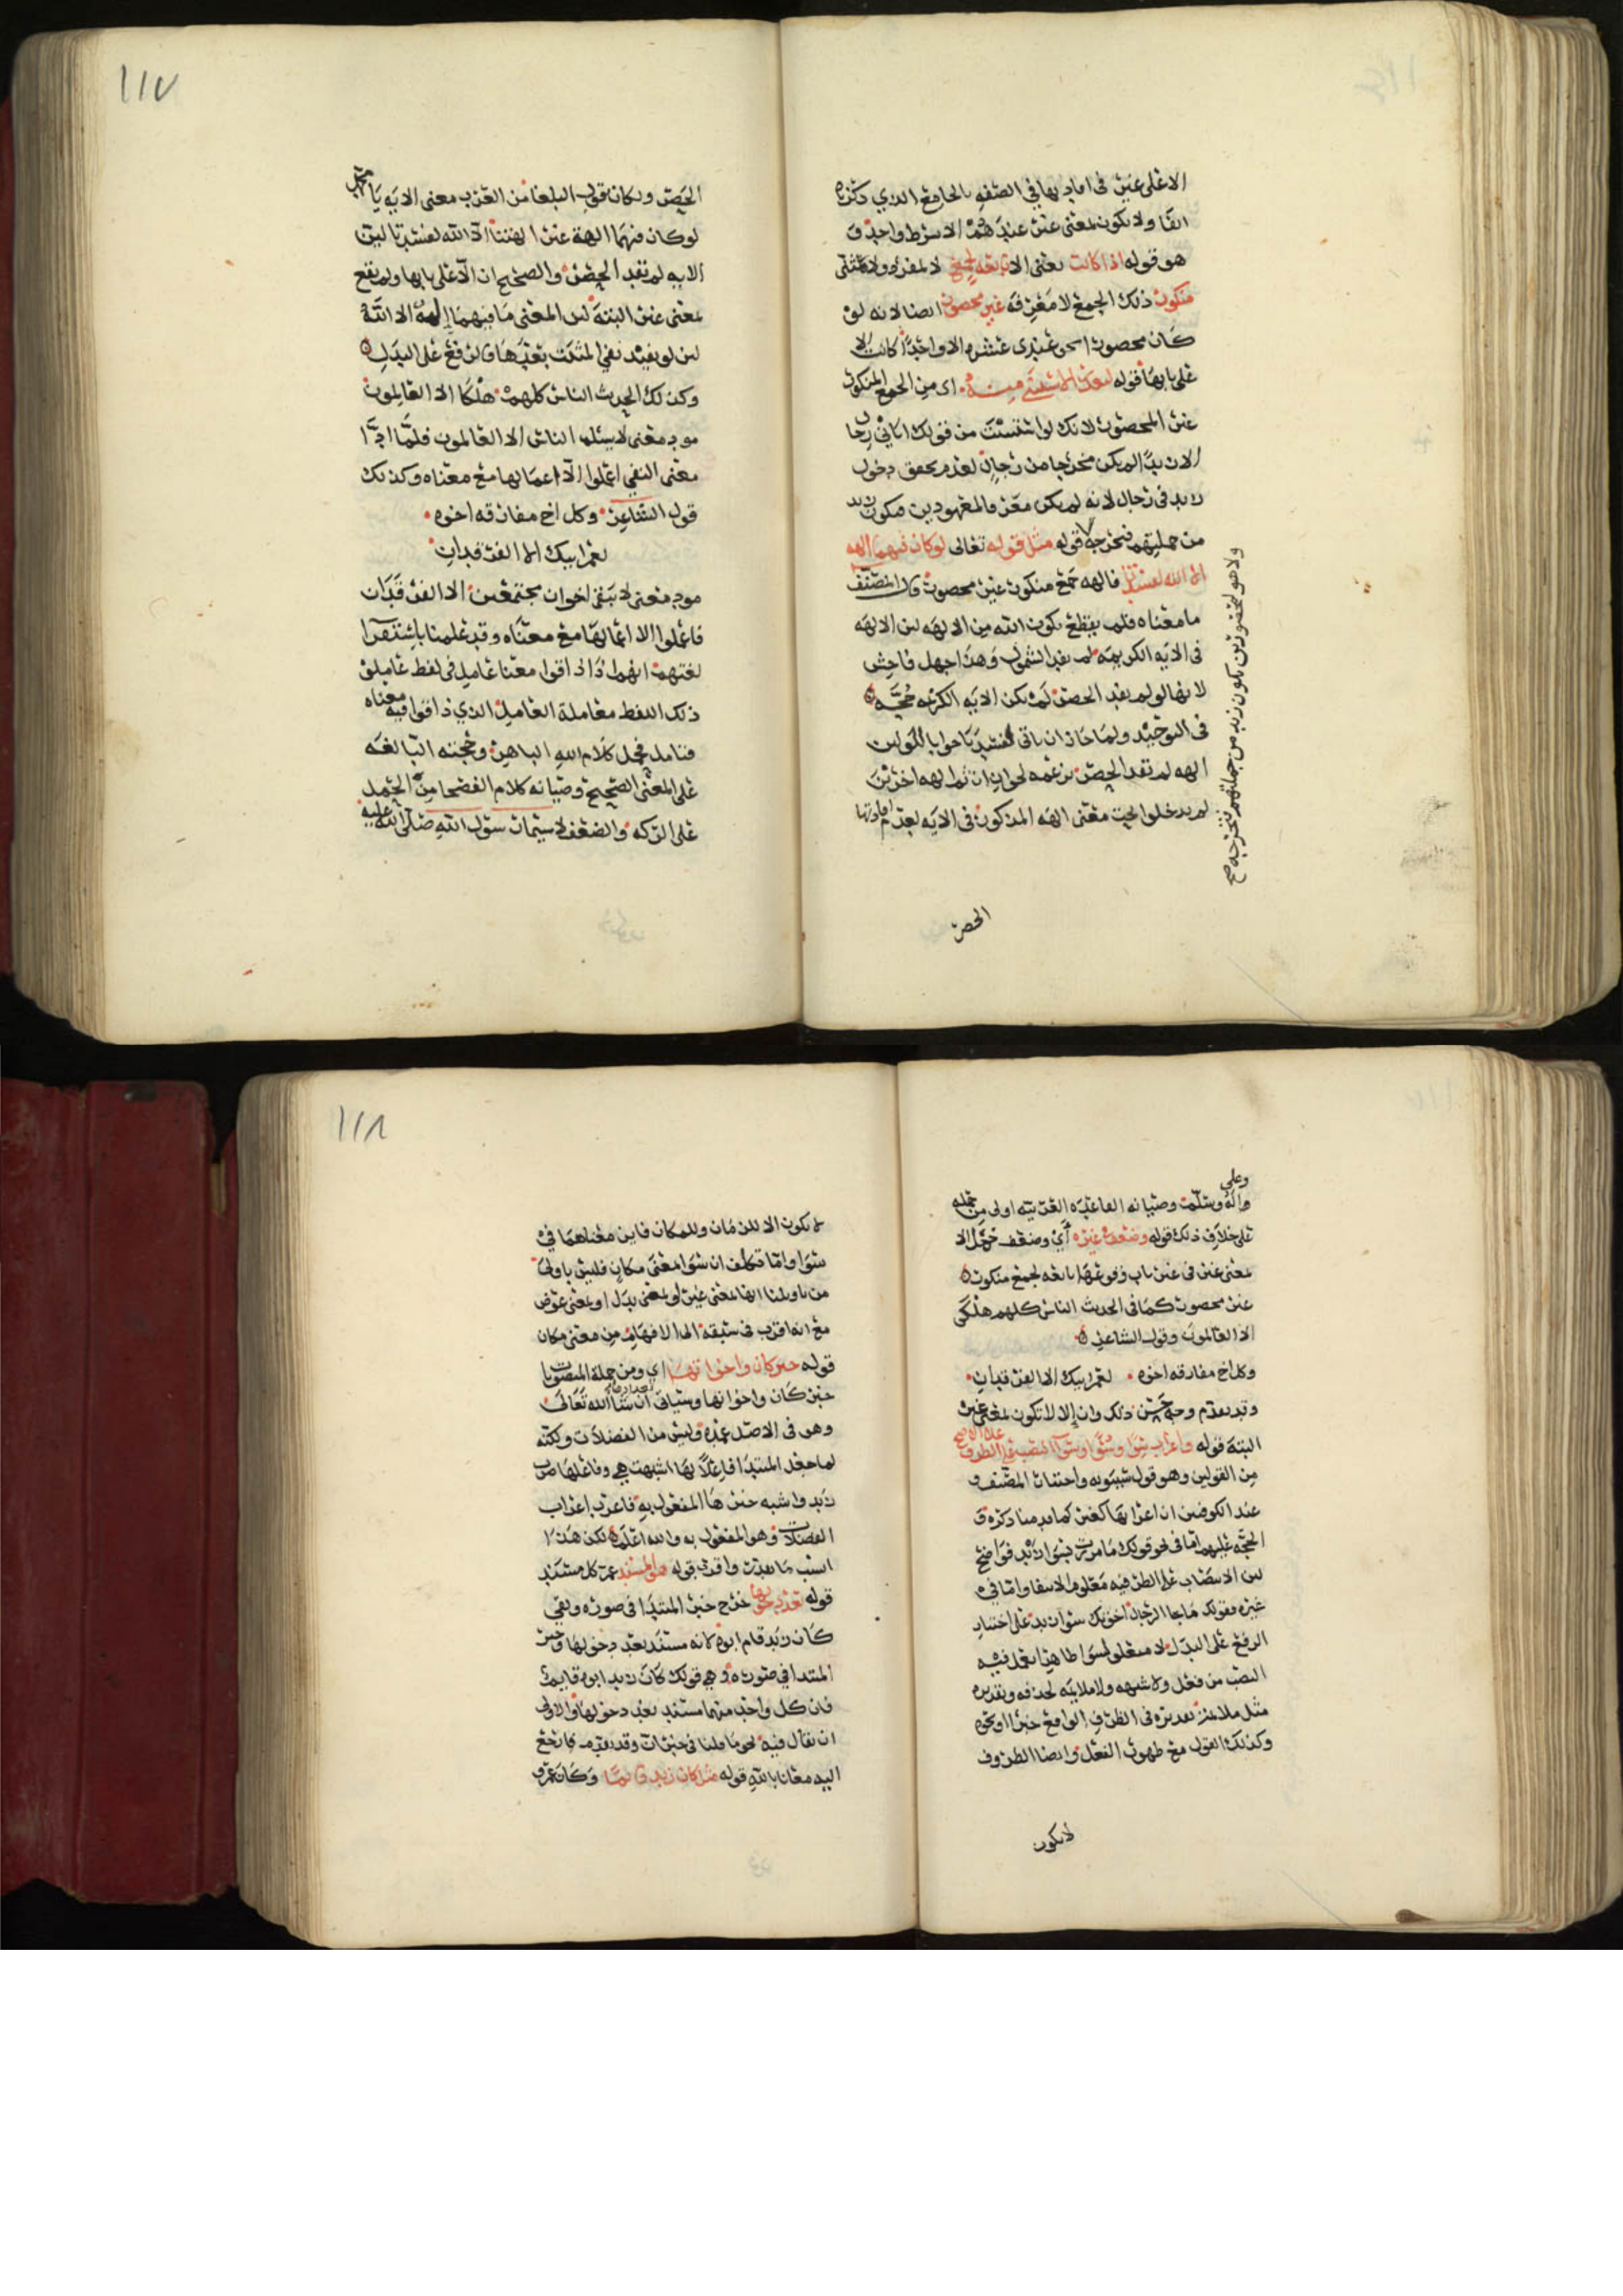 ١١٧
الا على غير فى افادتها في الصفه بالجامع الذي ذكرناه
انفا ولا يكون بمعنى غير عندهم الا بشرط واحد و
هو قوله اذا كانت يعنى الا تابعة لجمع لا لمفرد ولا لمثنى
منكور ذلك الجمع لا معرفة غير محصور ايضا لانه لو
كان محصورا نحو عندى عشره الا واحدا كانت الا
على بابها قوله لتعذر الاستثنى منه اى من الجمع المنكور
غير المحصور لانك لو استثنيت من قولك اتانى رجال
الا زيدا لم يكن مخرجا من رجال لعدم تحقق دخول
زيد فى رجال لانه لم يكن معرفا لمعهودين فيكون زيد
من جملتهم فتخرجه قوله مثل قوله تعالى لو كان فيهما الهه
الا الله لفسدتا فالهه جمع منكور غير محصور قال المصنف
ما معناه فلم يقطع بكون الله من الالهه لان الالهه
فى الايه الكريمه لم يفد الشمول وهذا جهل فاحش
لانها لو لم يفد الحصر لم تكن الايه الكريمه حجة
فى التوحيد ولما جاز ان ياتى لفسدتا جوابا لكون
الهه لم تفد الحصر بزعمه لجواز ان ثم الهه اخرين
لم يدخلوا تحت معنى الهه المذكور فى الايه لعدم افادتها
ولا هو لمحصورين يكون زيد من جملتهم فتخرجه صح
الحصر
الحصر ولكان قول البلغا من العرب معنى الايه يا محمد
لو كان فيهما الهة غير الهتنا الا الله لفسدتا لان
الايه لم تفد الحصر والصحيح ان الا على بابها ولم تقع
بمعنى غير البتة لان المعنى ما فيهما الهة الا الله
لان لو يفيد نفي المثبت بعدها فارتفع على البدل
وكذلك الحديث الناس كلهم هلكا الا العالمون
هو بمعنى لا يسلم الناس الا العالمون فلما ادا
معنى النفي اعملوا الا اعمالها مع معناه وكذلك
قول الشاعر وكل اخ مفارقه اخوه
لعمر ابيك الا الفرقدان
هو بمعنى لا يبقى اخوان مجتمعين الا الفرقدان
فاعملوا الا اعمالها مع معناه وقد علمنا باستقرا
لغتهم انهم اذا اذاقوا معنا عامل فى لفظ عاملوا
ذلك اللفظ معاملة العامل الذي ذاقوا فيه معناه
فتامل فحمل كلام الله الباهر وحجته البالغه
على المعنى الصحيح وصيانه كلام الفصحا من الحمل
على الركه والضعف لا سيما رسول الله صلى الله عليه
١١٨
وعلى
واله وسلم وصيانه القاعده العربيه اولى من حمله
على خلاف ذلك قوله وضعف فى غيره أي وضعف حمل الا
بمعنى غير فى غير باب وقوعها تابعه لجمع منكور
غير محصور كما فى الحديث الناس كلهم هلكى
الا العالمون وقول الشاعر
وكل اخ مفارقه اخوه لعمر ابيك الا الفرقدان
وقد تقدم وجه حسن ذلك وان إلا لا تكون بمعنى غير
البتة قوله واعراب سوى وسوا النصب على الظرف على الاصح
من القولين وهو قول سيبويه واختيار المصنف و
عند الكوفيين ان اعرابها كغير كما قدمنا ذكره و
الحجة عليهم اما فى نحو قولك ما مررت بسوا زيد فواضح
لان الانتصاب على الظرفيه معلوم الانتفا واما في
غيره فقولك ما جا الرجال اخوتك سوا زيد على اختيار
الرفع على البدل لا متعلق لسوا ظاهرا تعمل فيه
النصب من فعل ولا شبهه ولا ملايمه لحذفه وتقديره
مثل ملايمة تقديره فى الظرف الواقع خبرا او نحوه
وكذلك القول مع ظهور الفعل وايضا الظروف
لا يكون
لا يكون الا للزمان وللمكان فاين معناهما في
سوا واما تكلف ان سوا بمعنى مكان فليس باولى
من تاويلنا انها بمعنى غير او بمعنى بدل او بمعنى عوض
مع انه اقرب فى سبقه الى الافهام من معنى مكان
قوله خبر كان واخواتها اي ومن جملة المنصوبات
خبر كان واخواتها وسياتى ان شا الله تعالى
وهو فى الاصل عمدة وليس من الفضلات ولكنه
لما جعل المبتدا فاعلا لها اشبهت هي وفاعلها ضرب
زيد واشبه خبرها المفعول به فاعرب اعراب
الفضلات وهو المفعول به والله اعلم لكن هذا
انسب مما تقدم واقدم قوله هو المسند عم كل مسند
قوله بعد دخولها خرج خبر المبتدا فى صوره وبقي
كان زيد قام ابوه لانه مسند بعد دخولها وخبر
المبتدا في صوره وهي قولك كان زيد ابوه قايم
فان كل واحد منهما مسند بعد دخولها والاولى
ان يقال فيه نحو ما قلنا فى خبر ان وقد تقدم فارجع
اليه معانا بالله قوله مثل كان زيد قائما وكان عمرو